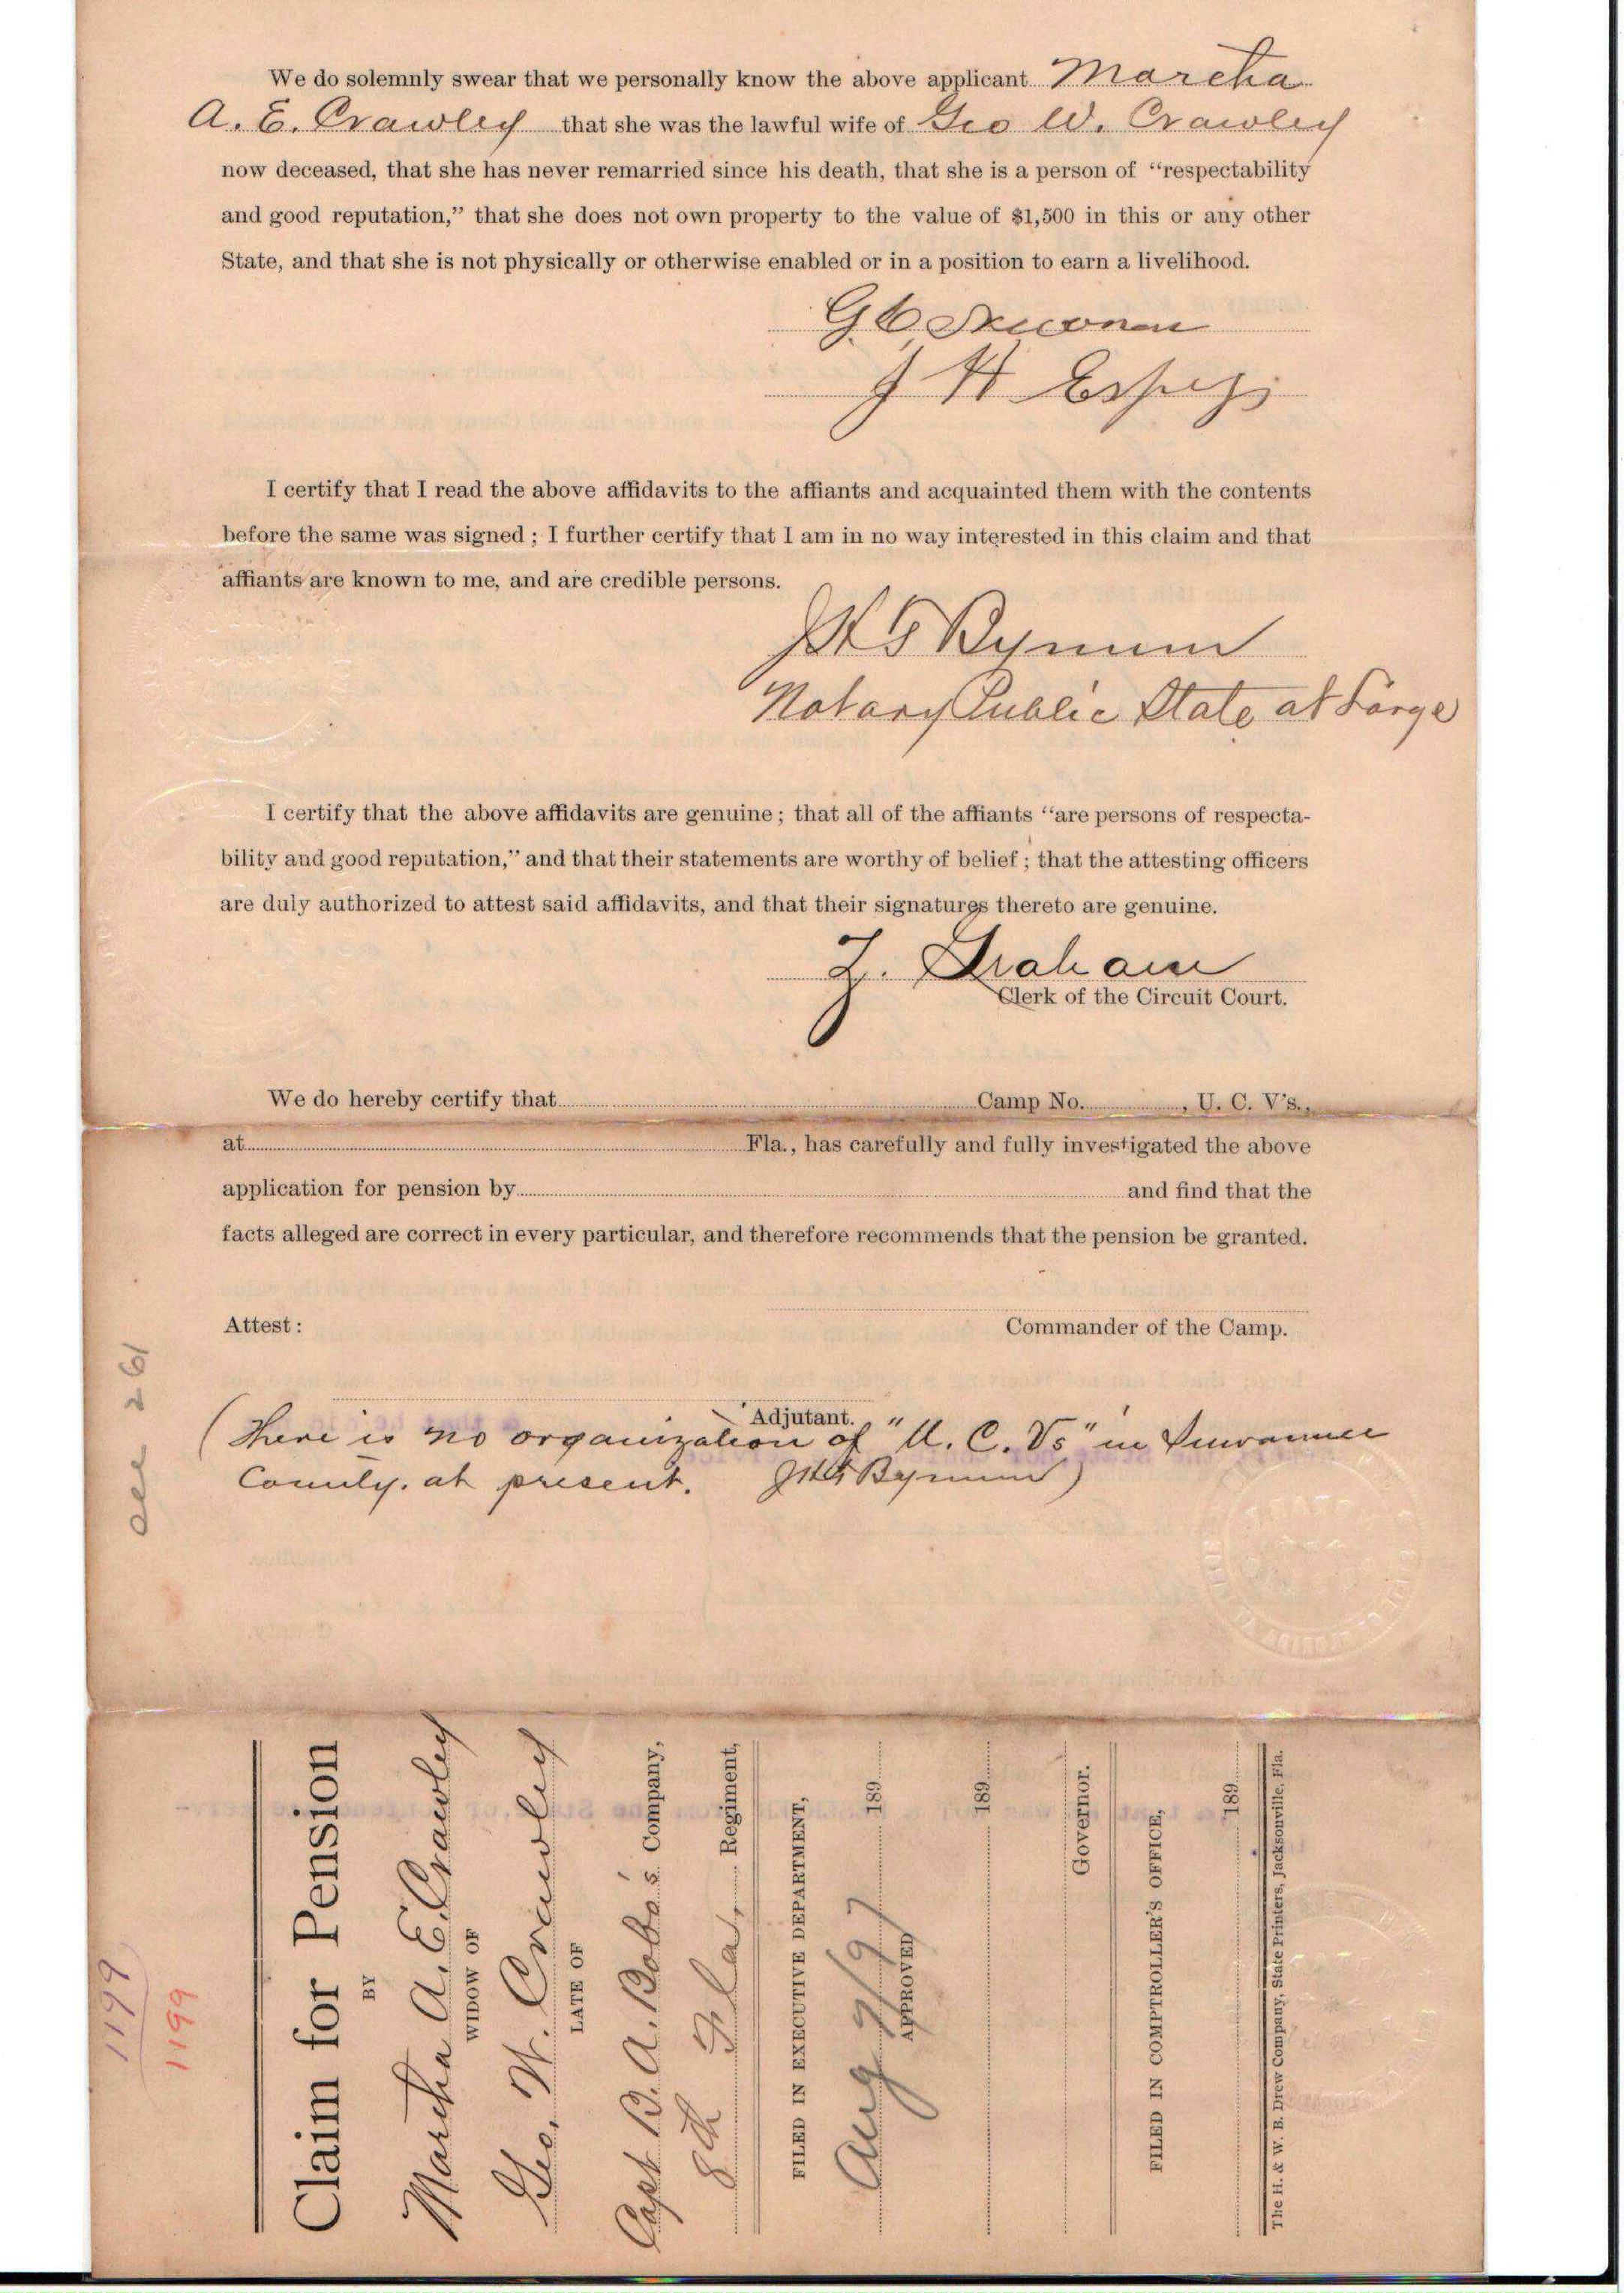 We do solemnly swear that we personally know the above applicant Martha
A. E. Crawley that she was the lawful wife of Geo W. Crawley
now deceased, that she has never remarried since his death, that she is a person of “respectability
and good reputation,” that she does not own property to the value of $1,500 in this or any other
State, and that she is not physically or otherwise enabled or in a position to earn a livelihood.
G C
J H
I certify that I read the above affidavits to the affiants and acquainted them with the contents
before the same was signed; I further certify that I am in no way interested in this claim and that
affiants are known to me, and are credible persons.
Bynum
Notary Public State at Large
I certify that the above affidavits are genuine; that all of the affiants “are persons of respecta-
bility and good reputation,” and that their statements are worthy of belief; that the attesting officers
are duly authorized to attest said affidavits, and that their signatures thereto are genuine.
Graham
Clerk of the Circuit Court.
We do hereby certify that Camp No. , U. C. V's.,
at Fla., has carefully and fully investigated the above
application for pension by and find that the
facts alleged are correct in every particular, and therefore recommends that the pension be granted.
Attest:
Commander of the Camp.
Adjutant.
(There is no organization of "U. C. Vs" in Suwannee
County. at present. Bynum)
261
1199
1199
Claim for Pension
BY
Martha A. E. Crawley
WIDOW OF
Geo. W. Crawley
LATE OF
Capt B. A. Bobo's Company,
8th Fla. Regiment,
FILED IN EXECUTIVE DEPARTMENT,
Aug 7/97 189
APPROVED
189
Governor.
FILED IN COMPTROLLER'S OFFICE,
189
The H. & W. B. Drew Company, State Printers, Jacksonville, Fla.